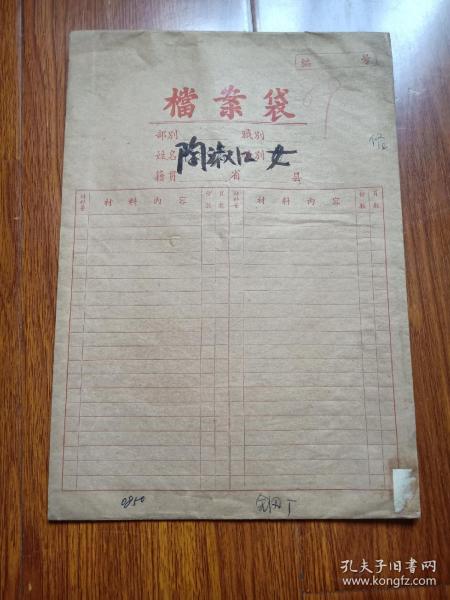 編 号
檔案袋
部別 職別
姓名 陶淑江 別 女
籍貫 省 县
材料号 材料內容 份数 頁数 材料号 材料內容 份数 頁数
0850
孔夫子旧书网
www.kongfz.com